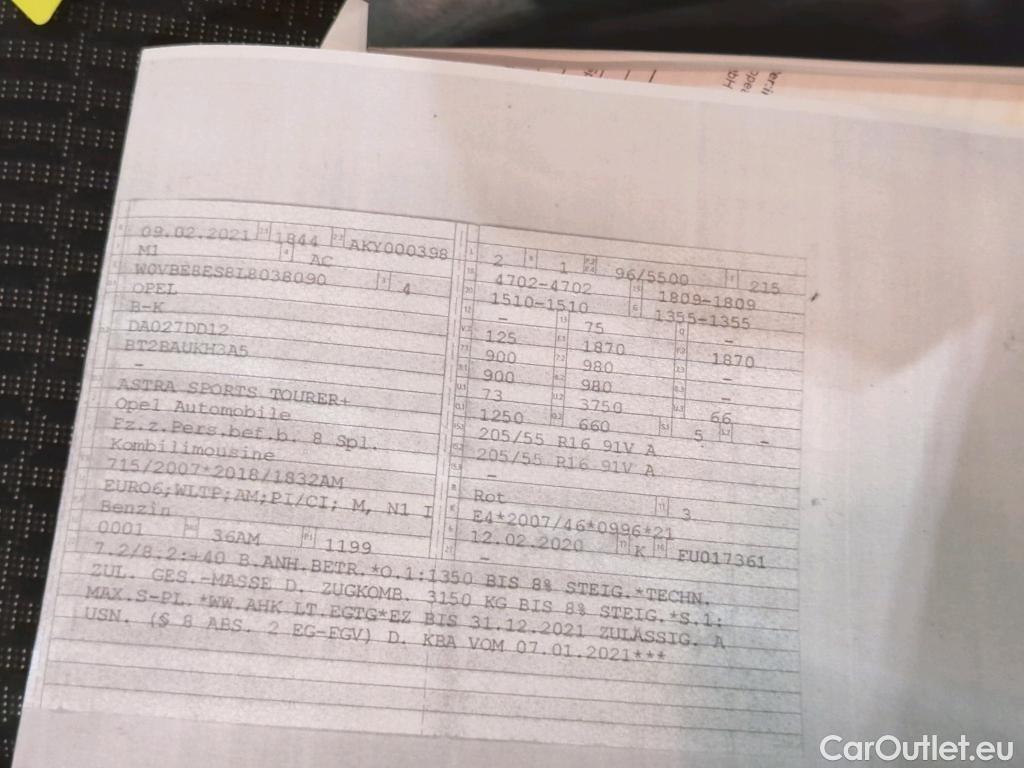 09.02.2021 2.1 1844 2.2 AKY000398
M1 4 AC
W0VBE8ES8L8038090 3 4
OPEL
B-K
DA027DD12
BT2BAUKH3A5
–
ASTRA SPORTS TOURER+
Opel Automobile
Fz.z.Pers.bef.b. 8 Spl.
Kombilimousine
715/2007*2018/1832AM
EURO6;WLTP;AM;PI/CI; M, N1 I
Benzin
0001 36AM P.1 1199
L 2 9 1 P.2 P.4 96/5500 T 215
18 4702-4702 19 1809-1809
20 1510-1510 G 1355-1355
12 – 13 75 Q –
V.7 125 F.1 1870 F.2 1870
7.1 900 7.2 980 7.3 –
8.1 900 8.2 980 8.3 –
U.1 73 U.2 3750 U.3 66
O.1 1250 O.2 660 S.1 5 S.2 –
15.1 205/55 R16 91V A
15.2 205/55 R16 91V A
15.3 –
R Rot 11 3
K E4*2007/46*0996*21
6 12.02.2020 17 K 16 FU017361
21 –
7.2/8.2:+40 B.ANH.BETR.*O.1:1350 BIS 8% STEIG.*TECHN.
ZUL. GES.-MASSE D. ZUGKOMB. 3150 KG BIS 8% STEIG.*S.1:
MAX.S-PL.*WW.AHK LT.EGTG*EZ BIS 31.12.2021 ZULÄSSIG. A
USN. (§ 8 ABS. 2 EG-EGV) D. KBA VOM 07.01.2021***
CarOutlet.eu